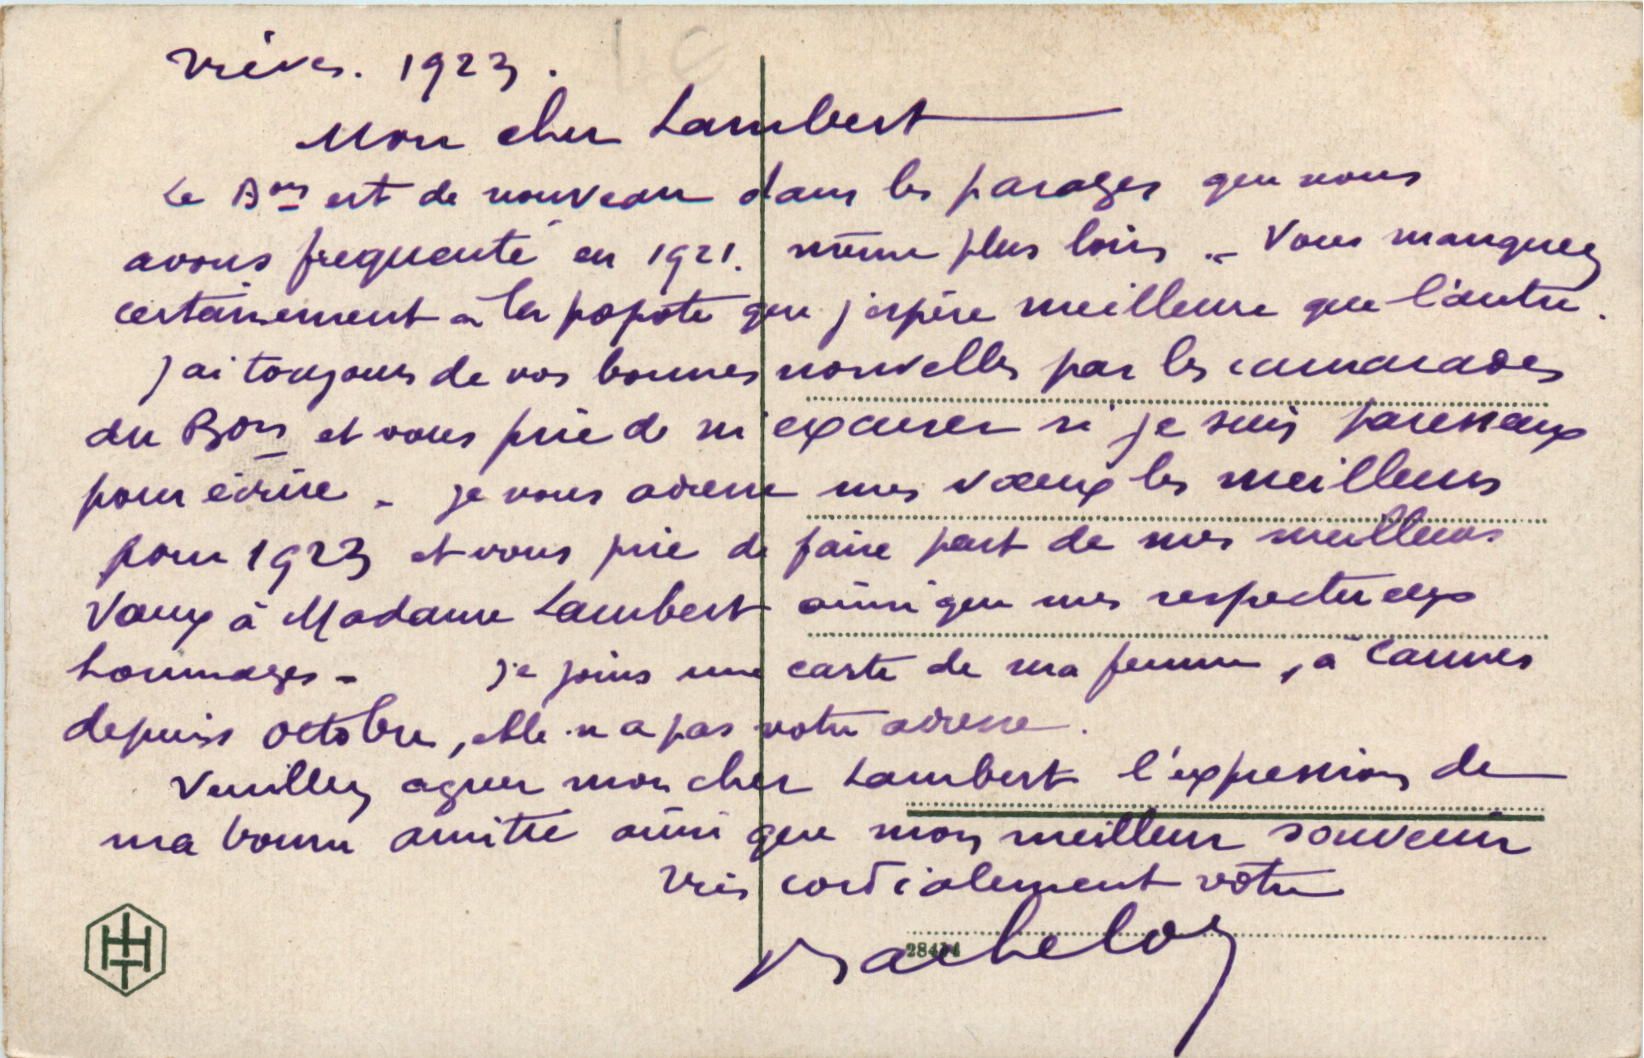 Trèves. 1923.
Mon cher Lambert
Le Bon est de nouveau dans les parages que nous
avons frequenté en 1921. même plus loin .– Vous manquez
certainement à la popote que j'espère meilleure que l'autre.
J'ai toujours de vos bonnes nouvelles par les camarades
du Bon et vous prie de m'excuser si je suis paresseux
pour écrire – Je vous adresse mes vœux les meilleurs
pour 1923 et vous prie de faire part de mes meilleurs
Vœux à Madame Lambert ainsi que mes respectueux
hommages – Je joins une carte de ma femme, à Cannes
depuis Octobre, elle n'a pas votre adresse.
Veuillez agréer mon cher Lambert l'expression de
ma bonne amitié ainsi que mon meilleur souvenir
Très cordialement vôtre